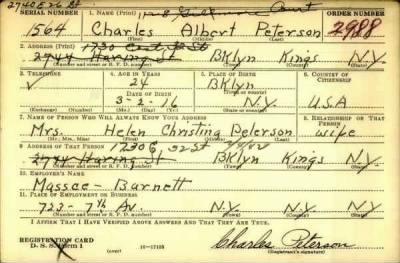 2740 E 26 St
SERIAL NUMBER 1. NAME (Print) ORDER NUMBER
1564 Charles Albert Peterson 2988
(First) (Middle) (Last)
2. ADDRESS (Print) 1730
2744 Haring St BKlyn Kings N.Y.
(Number and street or R. F. D. number) (Town) (County) (State)
3. TELEPHONE 4. AGE IN YEARS 5. PLACE OF BIRTH 6. COUNTRY OF CITIZENSHIP
24 BKlyn
DATE OF BIRTH
3-2-16 N.Y. U.S.A
(Exchange) (Number) (Mo.) (Day) (Yr.) (State or country)
7. NAME OF PERSON WHO WILL ALWAYS KNOW YOUR ADDRESS 8. RELATIONSHIP OF THAT PERSON
Mrs. Helen Christina Peterson wife
(Mr., Mrs., Miss) (First) (Middle) (Last)
9. ADDRESS OF THAT PERSON 1730 E. 32 St
2744 Haring St BKlyn Kings N.Y.
(Number and street or R. F. D. number) (Town) (County) (State)
10. EMPLOYER'S NAME
Massce-Barnett
11. PLACE OF EMPLOYMENT OR BUSINESS
723- 7th Av. N.Y. N.Y. N.Y.
(Number and street or R. F. D. number) (Town) (County) (State)
I AFFIRM THAT I HAVE VERIFIED ABOVE ANSWERS AND THAT THEY ARE TRUE.
REGISTRATION CARD
D. S. S. Form 1 (over) 16-17105 Charles Peterson
(Registrant's signature)